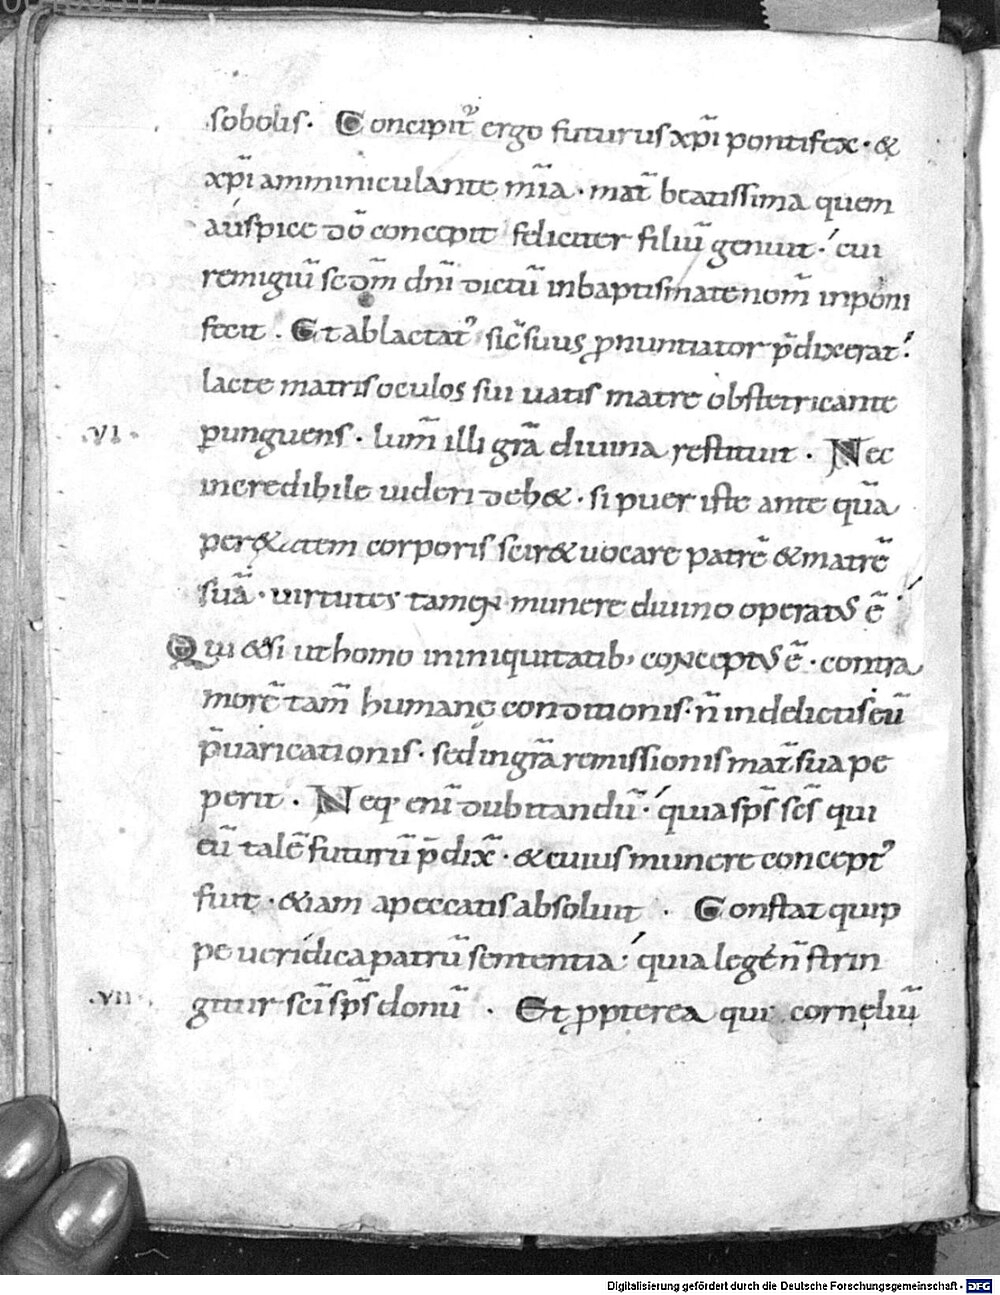 sobolis. Concipit᷒ ergo futurus xp̄i pontifex. &
xp̄i amminiculante mīa. mat̄ beatissima quem
auspice dō concepit feliciter filiū genuit. cui
remigiū scdm̄ dn̄i dictū inbaptismate nom̄ inponi
fecit. Et ablactat᷒ sic̄ suus ꝓnuntiator p̄dixerat.
lacte matris oculos sui uatis matre obstetricante
.VI. punguens. lum̄ illi grā diuina restituit. Nec
incredibile uideri deb&. si puer iste ante quā
per &atem corporis scir& uocare patrē & matrē
suā. uirtutes tamen munere diuino operatus ē.
Qui &si ut homo in iniquitatib; conceptus ē. contra
morē tam̄ humanę conditionis. n̄ in delictis eū
p̄uaricationis. sed in grā remissionis mat̄ sua pe
perit. Neq; enī dubitandū. quia sp̄s sc̄s qui
eū talē futurū p̄dix̄. & cuius munere concept᷒
fuit. &iam a peccatis absoluit. Constat quip
pe ueridica patrū sententia. quia lege n̄ strin
.VII. gitur sc̄i sp̄s donū. Et ꝓpterea qui corneliū
Digitalisierung gefördert durch die Deutsche Forschungsgemeinschaft - DFG